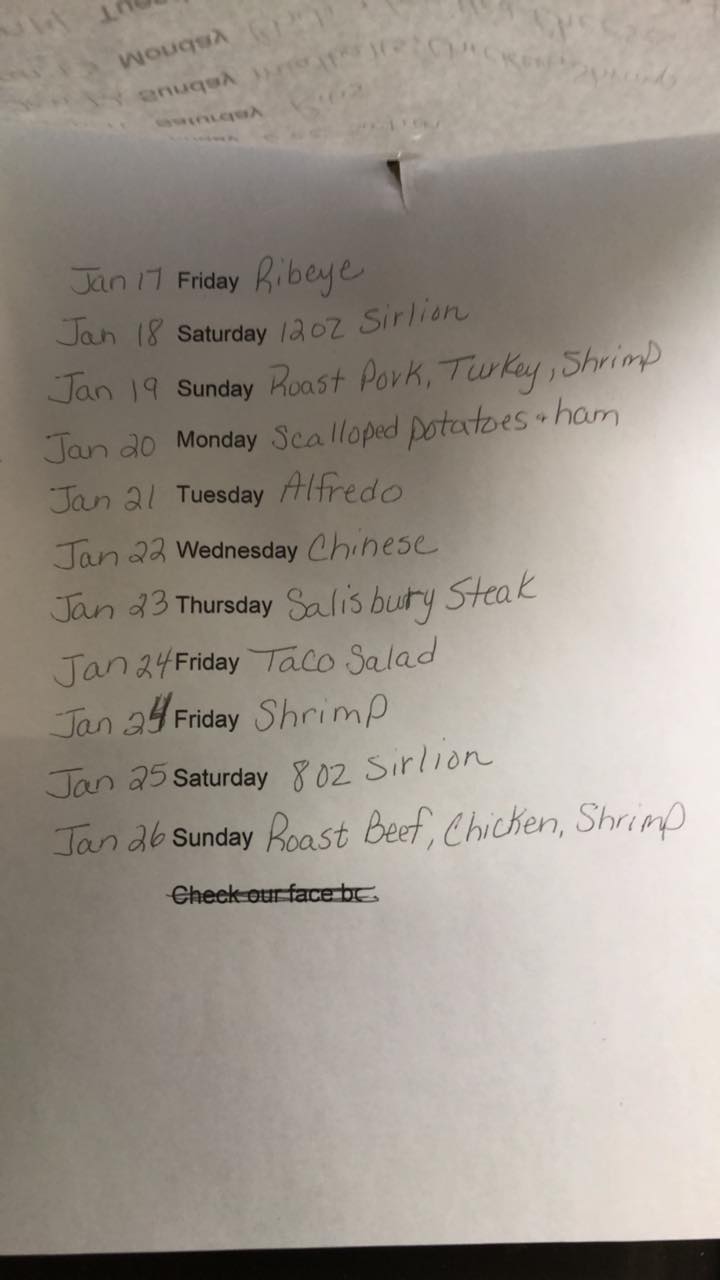 Monday
Sunday
Jan 17 Friday Ribeye
Jan 18 Saturday 12oz Sirlion
Jan 19 Sunday Roast Pork, Turkey, Shrimp
Jan 20 Monday Scalloped potatoes + ham
Jan 21 Tuesday Alfredo
Jan 22 Wednesday Chinese
Jan 23 Thursday Salisbury Steak
Jan 24 Friday Taco Salad
Jan 24 Friday Shrimp
Jan 25 Saturday 8oz Sirlion
Jan 26 Sunday Roast Beef, Chicken, Shrimp
Check our face bc